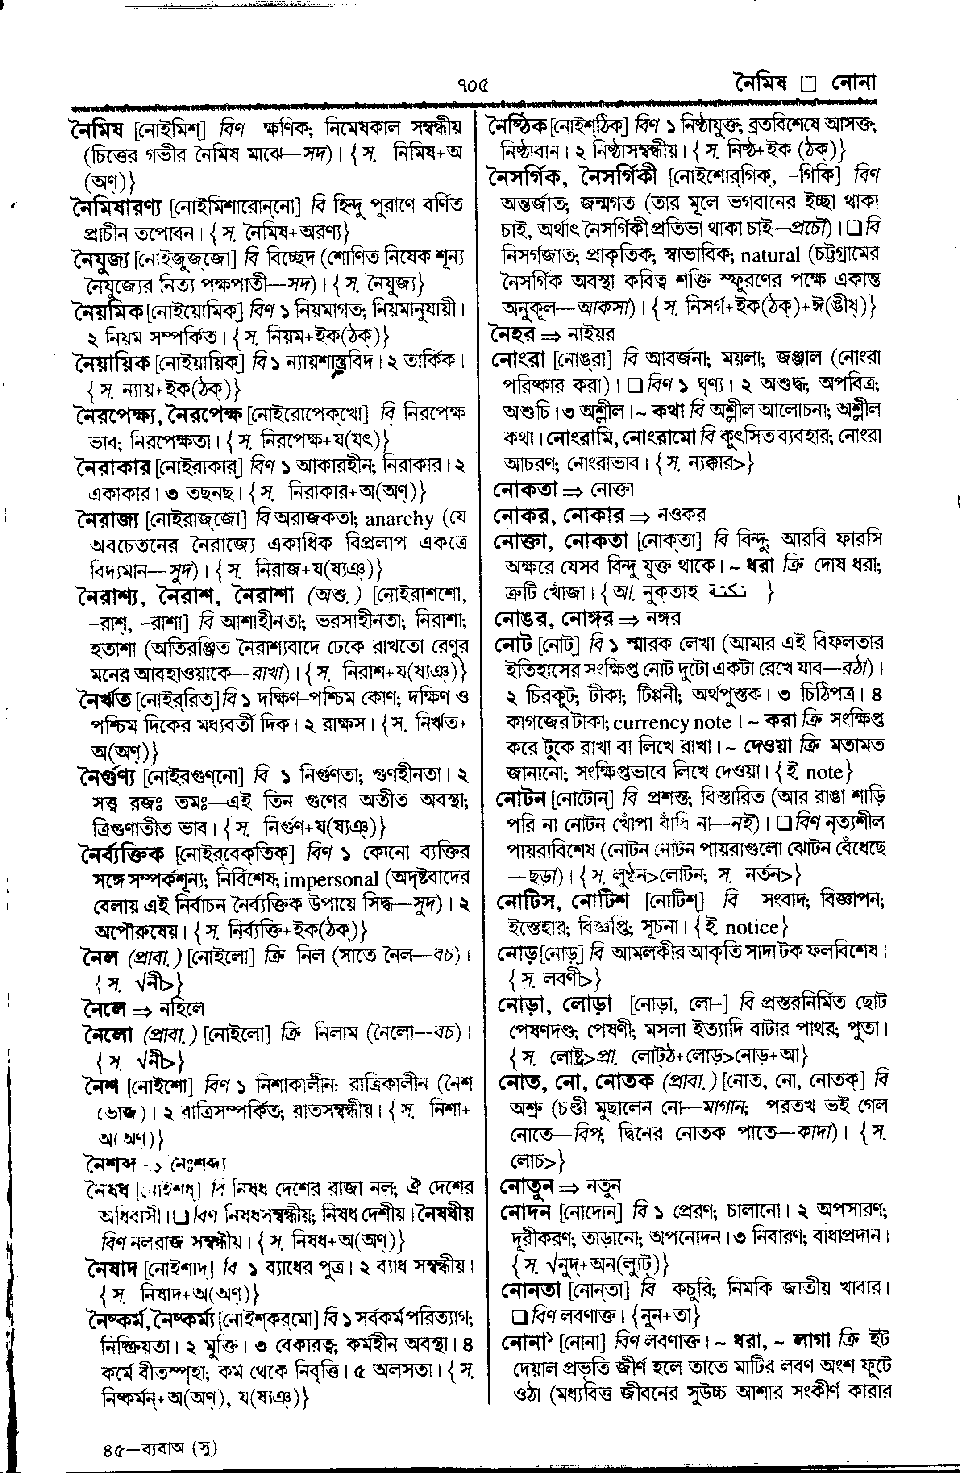 ৭০৫
নৈমিষ □ নোনা
নৈমিষ [নোইমিশ্] বিণ ক্ষণিক; নিমেষকাল সম্বন্ধীয়
(চিত্তের গভীর নৈমিষ মাঝে—সদ)। {স. নিমিষ+অ
(অণ্)}
নৈমিষারণ্য [নোইমিশারোন্‌নো] বি হিন্দু পুরাণে বর্ণিত
প্রাচীন তপোবন। {স. নৈমিষ+অরণ্য}
নৈযুজ্য [নোইজুজ্‌জো] বি বিচ্ছেদ (শোণিত নিষেক শূন্য
নৈযুজ্যের নিত্য পক্ষপাতী—সদ)। {স. নৈযুজ্য}
নৈয়মিক [নোইয়োমিক্] বিণ ১ নিয়মাগত; নিয়মানুযায়ী।
২ নিয়ম সম্পর্কিত। {স. নিয়ম+ইক(ঠক্)}
নৈয়ায়িক [নোইয়ায়িক্] বি ১ ন্যায়শাস্ত্রবিদ। ২ তার্কিক।
{স. ন্যায়+ইক(ঠক্)}
নৈরপেক্ষ্য, নৈরপেক্ষ [নোইরোপেক্‌খো] বি নিরপেক্ষ
ভাব; নিরপেক্ষতা। {স. নিরপেক্ষ+য(যৎ)}
নৈরাকার [নোইরাকার্] বিণ ১ আকারহীন; নিরাকার। ২
একাকার। ৩ তছনছ। {স. নিরাকার+অ(অণ্)}
নৈরাজ্য [নোইরাজ্‌জো] বি অরাজকতা; anarchy (যে
অবচেতনের নৈরাজ্যে একাধিক বিপ্রলাপ একত্রে
বিদ্যমান—সুদ)। {স. নিরাজ+য(ষ্যঞ্)}
নৈরাশ্য, নৈরাশ, নৈরাশা (অশু.) [নোইরাশ্‌শো,
–রাশ্, –রাশা] বি আশাহীনতা; ভরসাহীনতা; নিরাশা;
হতাশা (অতিরঞ্জিত নৈরাশ্যবাদে ঢেকে রাখতো রেণুর
মনের আবহাওয়াকে—রাখা)। {স. নিরাশ+য(ষ্যঞ্)}
নৈর্ঋত [নোইর্‌রিত্] বি ১ দক্ষিণ–পশ্চিম কোণ; দক্ষিণ ও
পশ্চিম দিকের মধ্যবর্তী দিক। ২ রাক্ষস। {স. নির্ঋত+
অ(অণ্)}
নৈর্গুণ্য [নোইর্‌গুণ্‌নো] বি ১ নির্গুণতা; গুণহীনতা। ২
সত্ত্ব রজঃ তমঃ—এই তিন গুণের অতীত অবস্থা;
ত্রিগুণাতীত ভাব। {স. নির্গুণ+য(ষ্যঞ্)}
নৈর্ব্যক্তিক [নোইর্‌বেক্‌তিক্] বিণ ১ কোনো ব্যক্তির
সঙ্গে সম্পর্কশূন্য; নির্বিশেষ; impersonal (অদৃষ্টবাদের
বেলায় এই নির্বাচন নৈর্ব্যক্তিক উপায়ে সিদ্ধ—সুদ)। ২
অপৌরুষেয়। {স. নির্ব্যক্তি+ইক(ঠক্)}
নৈল (প্রাবা.) [নোইলো] ক্রি নিল (সাতে নৈল—বচ)।
{স. √নী>}
নৈলে ⇒ নহিলে
নৈলো (প্রাবা.) [নোইলো] ক্রি নিলাম (নৈলো—বচ)।
{স. √নী>}
নৈশ [নোইশো] বিণ ১ নিশাকালীন; রাত্রিকালীন (নৈশ
ভোজ)। ২ রাত্রিসম্পর্কিত; রাতসম্বন্ধীয়। {স. নিশা+
অ(অণ্)}
নৈশব্দ ⇒ নৈঃশব্দ্য
নৈষধ [নোইশধ্] বি নিষধ দেশের রাজা নল; ঐ দেশের
অধিবাসী। □ বিণ নিষধসম্বন্ধীয়; নিষধ দেশীয়। নৈষধীয়
বিণ নলরাজ সম্বন্ধীয়। {স. নিষধ+অ(অণ্)}
নৈষাদ [নোইশাদ্] বি ১ ব্যাধের পুত্র। ২ ব্যাধ সম্বন্ধীয়।
{স. নিষাদ+অ(অণ্)}
নৈষ্কর্ম, নৈষ্কর্ম্য [নোইশ্‌কর্‌মো] বি ১ সর্বকর্ম পরিত্যাগ;
নিষ্ক্রিয়তা। ২ মুক্তি। ৩ বেকারত্ব; কর্মহীন অবস্থা। ৪
কর্মে বীতস্পৃহা; কর্ম থেকে নিবৃত্তি। ৫ অলসতা। {স.
নিষ্কর্মন্+অ(অণ্), য(ষ্যঞ্)}
৪৫—ব্যবাঅ (সু)
নৈষ্ঠিক [নোইশ্‌ঠিক্] বিণ ১ নিষ্ঠাযুক্ত; ব্রতবিশেষে আসক্ত;
নিষ্ঠাবান। ২ নিষ্ঠাসম্বন্ধীয়। {স. নিষ্ঠ+ইক (ঠক্)}
নৈসর্গিক, নৈসর্গিকী [নোইশোর্‌গিক্, -গিকি] বিণ
অন্তর্জাত; জন্মগত (তার মূলে ভগবানের ইচ্ছা থাকা
চাই, অর্থাৎ নৈসর্গিকী প্রতিভা থাকা চাই—প্রচৌ)। □ বি
নিসর্গজাত; প্রাকৃতিক; স্বাভাবিক; natural (চট্টগ্রামের
নৈসর্গিক অবস্থা কবিত্ব শক্তি স্ফুরণের পক্ষে একান্ত
অনুকূল—আকসা)। {স. নিসর্গ+ইক(ঠক্)+ঈ(ঙীষ্)}
নৈহর ⇒ নাইয়র
নোংরা [নোঙ্‌রা] বি আবর্জনা; ময়লা; জঞ্জাল (নোংরা
পরিষ্কার করা)। □ বিণ ১ ঘৃণ্য। ২ অশুদ্ধ; অপবিত্র;
অশুচি। ৩ অশ্লীল। ~ কথা বি অশ্লীল আলোচনা; অশ্লীল
কথা। নোংরামি, নোংরামো বি কুৎসিত ব্যবহার; নোংরা
আচরণ; নোংরাভাব। {স. ন্যক্কার>}
নোকতা ⇒ নোক্তা
নোকর, নোকার ⇒ নওকর
নোক্তা, নোকতা [নোক্‌তা] বি বিন্দু; আরবি ফারসি
অক্ষরে যেসব বিন্দু যুক্ত থাকে। ~ ধরা ক্রি দোষ ধরা;
ত্রুটি খোঁজা। {আ. নুক্‌তাহ نكتة }
নোঙর, নোঙ্গর ⇒ নঙ্গর
নোট [নোট্] বি ১ স্মারক লেখা (আমার এই বিফলতার
ইতিহাসের সংক্ষিপ্ত নোট দুটো একটা রেখে যাব—রঠা)।
২ চিরকুট; টীকা; টিপ্পনী; অর্থপুস্তক। ৩ চিঠিপত্র। ৪
কাগজের টাকা; currency note। ~ করা ক্রি সংক্ষিপ্ত
করে টুকে রাখা বা লিখে রাখা। ~ দেওয়া ক্রি মতামত
জানানো; সংক্ষিপ্তভাবে লিখে দেওয়া। {ই note}
নোটন [নোটোন্] বি প্রশস্ত; বিস্তারিত (আর রাঙা শাড়ি
পরি না নোটন খোঁপা বাঁধি না—নই)। □ বিণ নৃত্যশীল
পায়রাবিশেষ (নোটন নোটন পায়রাগুলো ঝোটন বেঁধেছে
—ছড়া)। {স. লুণ্ঠন>লোটন; স. নর্তন>}
নোটিস, নোটিশ [নোটিশ্] বি সংবাদ; বিজ্ঞাপন;
ইস্তেহার; বিজ্ঞপ্তি; সূচনা। {ই notice}
নোড় [নোড়্] বি আমলকীর আকৃতি সাদা টক ফলবিশেষ।
{স. লবণী>}
নোড়া, লোড়া [নোড়া, লো-] বি প্রস্তরনির্মিত ছোট
পেষণদণ্ড; পেষণী; মসলা ইত্যাদি বাটার পাথর; পুতা।
{স. লোষ্ট্র>প্রা. লোট্‌ঠ+লোড়>নোড়+আ}
নোত, নো, নোতক (প্রাবা.) [নোত্, নো, নোতক্] বি
অশ্রু (চণ্ডী মুছালেন নো—মাগান; পরতখ ভই গেল
নোতে—বিপ; দ্বিনের নোতক পাতে—কাদা)। {স.
লোচ>}
নোতুন ⇒ নতুন
নোদন [নোদোন্] বি ১ প্রেরণ; চালানো। ২ অপসারণ;
দূরীকরণ; তাড়ানো; অপনোদন। ৩ নিবারণ; বাধাপ্রদান।
{স. √নুদ্+অন(ল্যুট্)}
নোনতা [নোন্‌তা] বি কচুরি; নিমকি জাতীয় খাবার।
□ বিণ লবণাক্ত। {নুন+তা}
নোনা১ [নোনা] বিণ লবণাক্ত। ~ ধরা, ~ লাগা ক্রি ইট
দেয়াল প্রভৃতি জীর্ণ হলে তাতে মাটির লবণ অংশ ফুটে
ওঠা (মধ্যবিত্ত জীবনের সুউচ্চ আশার সংকীর্ণ কারার